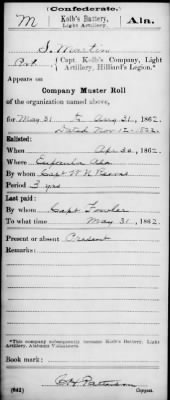 (Confederate.)
M Kolb's Battery, Light Artillery. Ala.
S. Martin
Pvt., Capt. Kolb's Company, Light Artillery, Hilliard's Legion.*
Appears on
Company Muster Roll
of the organization named above,
for May 31 to Aug 31, 1862.
Dated Nov 12 1862.
Enlisted:
When Apr 30, 1862.
Where Eufaula Ala
By whom Capt W N
Period 3 yrs
Last paid:
By whom Capt Fowler
To what time May 31, 1862.
Present or absent Present
Remarks:
*This company subsequently became Kolb's Battery, Light Artillery, Alabama Volunteers.
Book mark:
(642) Copyist.